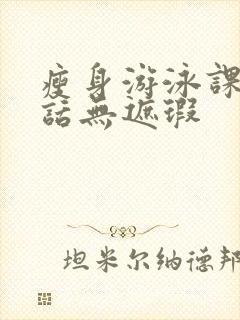 瘦身游泳課
話無遮瑕
坦米尔纳德邦